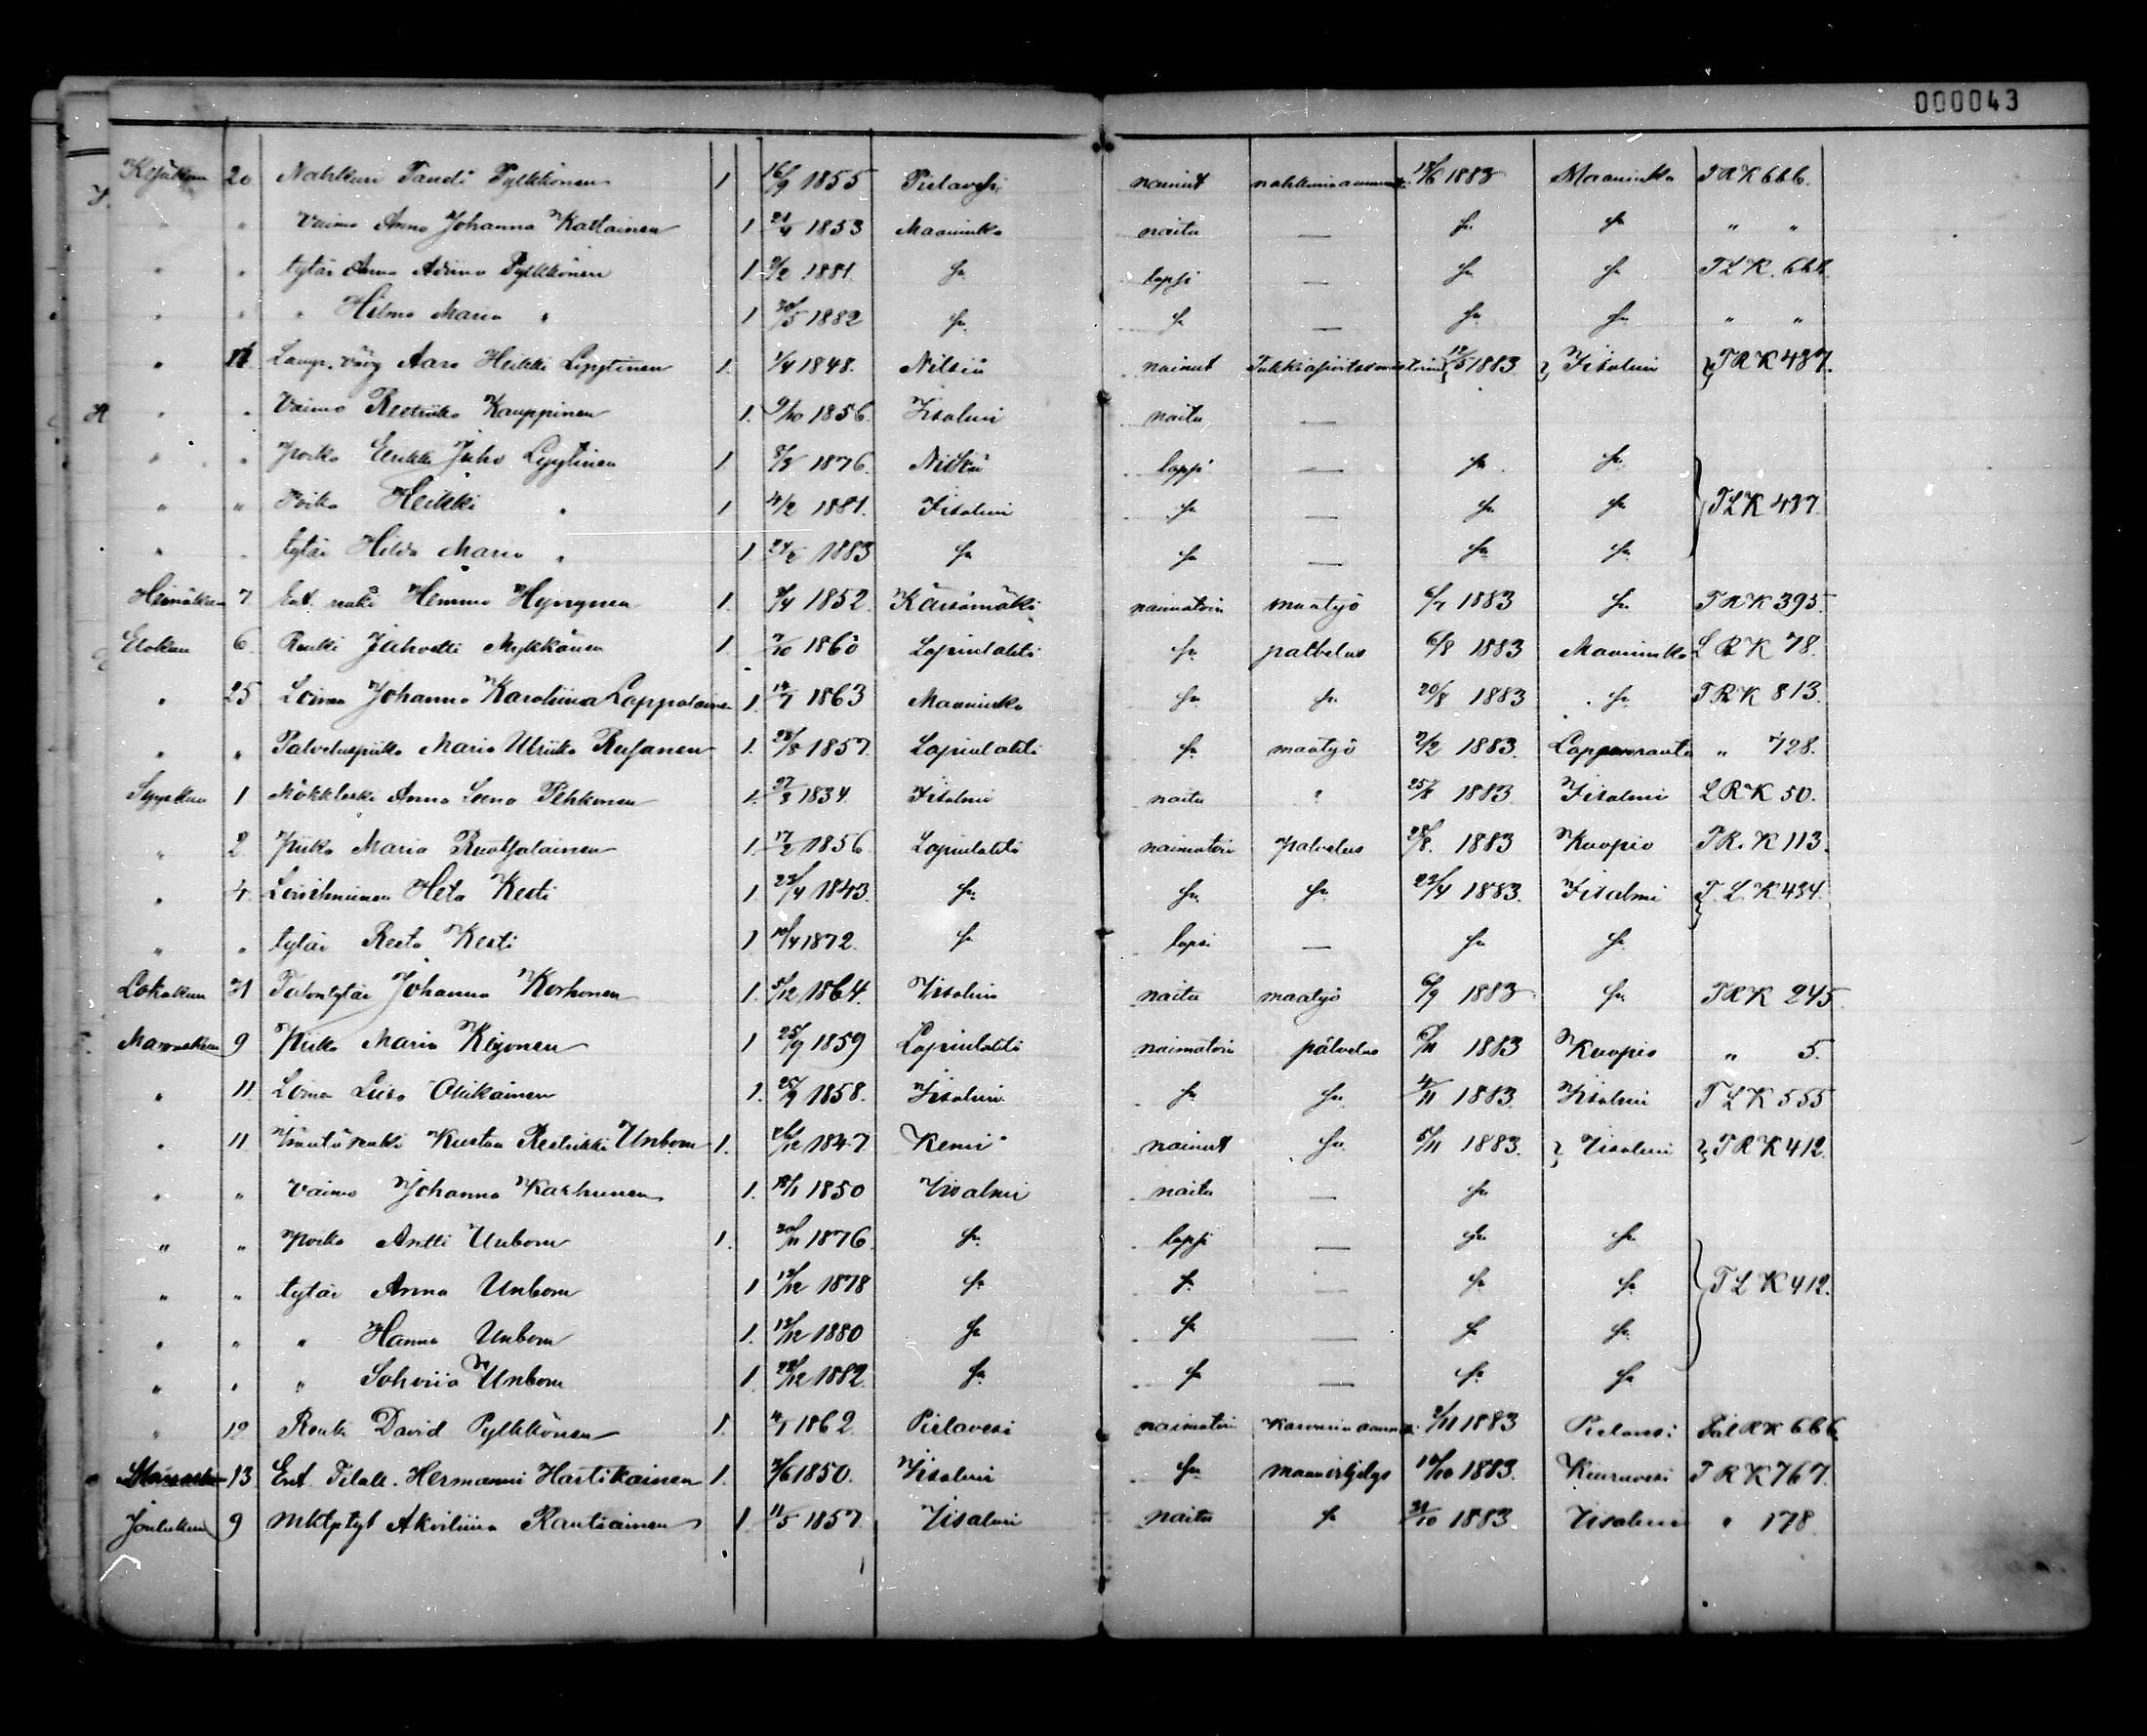 000043
Kesäkuu 20 Nahkuri Taneli Pylkkönen 1 16/9 1855 Pielavesi nainut nahkurinammatti 18/6 1883 Maaninka T R K 666.
" " Vaimo Anna Johanna Kattainen 1 21/4 1853 Maaninka naitu — sa sa " "
" " tytär Anna Adiina Pylkkönen 1 9/2 1881. sa lapsi — sa sa T L K. 666.
" " " Hilma Maria " 1 30/5 1882 sa sa — sa sa " "
" 21 Lamp. vävy Aaro Heikki Lyytinen 1. 1/4 1848. Nilsiä nainut 12/5 1883 } Iisalmi } T R K 437.
" " Vaimo Reetriika Kauppinen 1. 9/10 1856. Iisalmi naitu —
" " poika Eerikki Juho Lyytinen 1 8/8 1876. Nilsiä lapsi — sa sa
" " Poika Heikki " 1 4/2 1881. Iisalmi sa — sa sa } T L K 437.
" " tytär Hilda Maria " 1 24/2 1883 sa sa — sa sa
Heinäkuu 7 Ent. renki Hemmo Hyvynen 1. 9/4 1852. Kärsämäki naimatoin maatyö 6/7 1883 sa T R K 395.
Elokuu 6 Renki Jahvetti Mykkänen 1. 7/10 1860 Lapinlahti sa palvelus 6/8 1883 Maaninka L R K 78.
" 25 Loinen Johanna Karoliina Lappalainen 1. 14/7 1863 Maaninka sa sa 20/8 1883 sa T R K 813.
" " Palveluspiika Maria Ulriika Rusanen 1. 28/8 1857. Lapinlahti sa maatyö 2/2 1883. Lappeenranta " 728.
Syyskuu 1 Mökkleski Anna Leena Pehkonen 1. 27/3 1834. Iisalmi naitu ? 25/8 1883. Iisalmi L R K 50.
" 2 Piika Maria Ruotsalainen 1. 17/2 1856. Lapinlahti naimatoin palvelus 28/8. 1883 Kuopio T R. K 113.
" 4. Loisihminen Heta Kesti 1. 23/4 1843. sa sa sa 23/4 1883. Iisalmi } T. L. K 434.
" " tytär Reeta Kesti 1 10/4 1872. sa lapsi — sa sa
Lokakuu 31 Talontytär Johanna Korhonen 1. 5/12 1864. Iisalmi naitu maatyö 6/9 1883 sa T R K 245
Marraskuu 9 Piika Maria Kejonen 1 25/9 1859 Lapinlahti naimatoin palvelus 6/11 1883 Kuopio " 5.
" 11. Loinen Liisa Ollikainen 1. 25/9 1858. Iisalmi sa sa 4/11 1883. Iisalmi T L K 555
" 11 Isäntä renki Kustaa Reetrikki Unbom 1. 26/12 1847 Kemi nainut sa 5/11 1883. } Iisalmi } T R K 412.
" " Vaimo Johanna Karhunen 1. 18/1 1850 Iisalmi naitu — sa
" " poika Antti Unbom 1. 30/11 1876. sa lapsi — sa sa
" " tytär Anna Unbom 1 13/12 1878 sa sa — sa sa } T L K 412.
" " " Hanna Unbom 1. 12/12 1880 sa sa — sa sa
" " " Sohviia Unbom 1 28/12 1882. sa sa — sa sa
" 12. Renki David Pylkkönen 1. 4/1 1862. Pielavesi naimatoin 2/11 1883 Pielavesi RK 666
13. Ent. Tilall. Hermanni Hartikainen 1. 2/6 1850. Iisalmi sa maanviljelys 10/10 1883. Kiuruvesi T R K 767.
Joulukuu 9 Akviliina Rautiainen 1. 11/5 1857. Iisalmi naitu sa 31/10 1883. Iisalmi " 178.